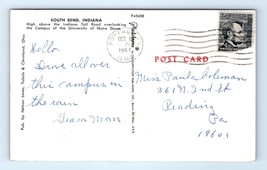 SOUTH BEND, INDIANA
High above the Indiana Toll Road overlooking
the Campus of the University of Notre Dame.
P45458
Pub. by Nelson Jones, Toledo & Cleveland, Ohio
OCT
1967
POST CARD
Hello.
Drove all over
this campus in
the rain
Miss Paula Coleman
361 N. 2nd St
Reading
Pa
19601